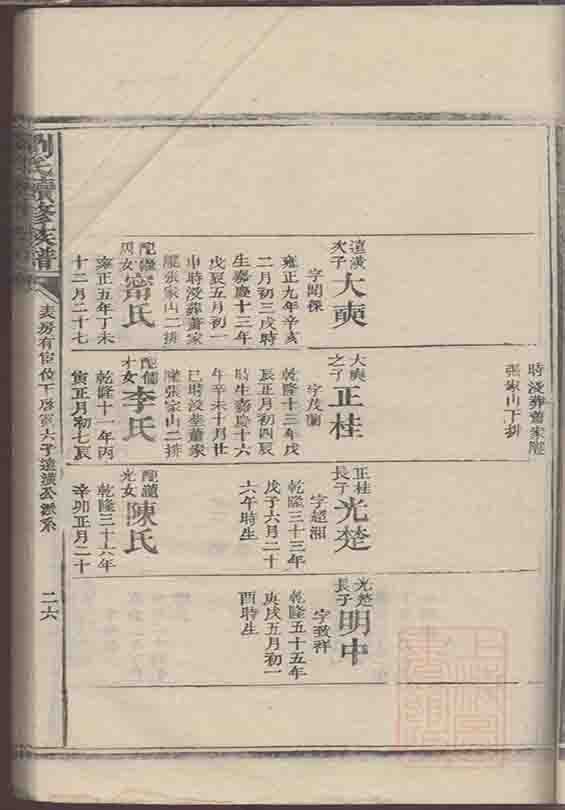 時沒葬蕭家壠
張家山下排
遠漢
次子
大奭
字聞傑
雍正九年辛亥
二月初三戌時
生嘉慶十三年
戊辰五月初一
申時沒葬蕭家
壠張家山二排
配隆
女
甯氏
雍正五年丁未
十二月二十七
大奭
之子
正桂
字茂蘭
乾隆十三年戊
辰正月初四辰
時生嘉慶十六
年辛未十月廿
巳時沒葬蕭家
壠張家山二排
配儒
才女
李氏
乾隆十一年丙
寅正月初七辰
正桂
長子
光楚
字超湘
乾隆三十三年
戊子六月二十
六午時生
配
光女
陳氏
乾隆三十六年
辛卯正月二十
光楚
長子
明中
字致祥
乾隆五十五年
庚戌五月初一
酉時生
劉氏續修族譜
表房有官位下啓六子遠漢公派系
二六